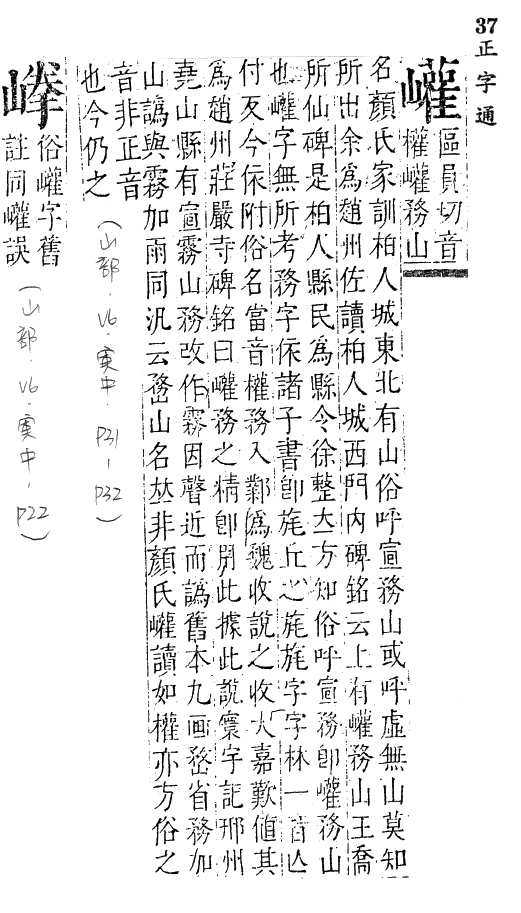 37正字通
巏
區員切音
權巏務山
名顏氏家訓柏人城東北有山俗呼宣務山或呼虛無山莫知
所出余爲趙州佐讀柏人城西門內碑銘云上有巏務山王喬
所仙碑是柏人縣民爲縣令徐整立方知俗呼宣務卽巏務山
也巏字無所考務字依諸子書卽旄丘之旄旄字字林一音亾
付反今依附俗名當音權務入鄴爲魏收說之收大嘉歎値其
爲趙州莊嚴寺碑銘曰巏務之精卽用此據此說寰宇記邢州
堯山縣有宣霧山務改作霧因聲近而譌舊本九画嵍省務加
山譌與霧加雨同汎云嵍山名𠀤非顏氏巏讀如權亦方俗之
音非正音
也今仍之
(山部.V6.寅中.P31-P32)
俗巏字舊
註同巏誤
(山部.V6.寅中.P22)